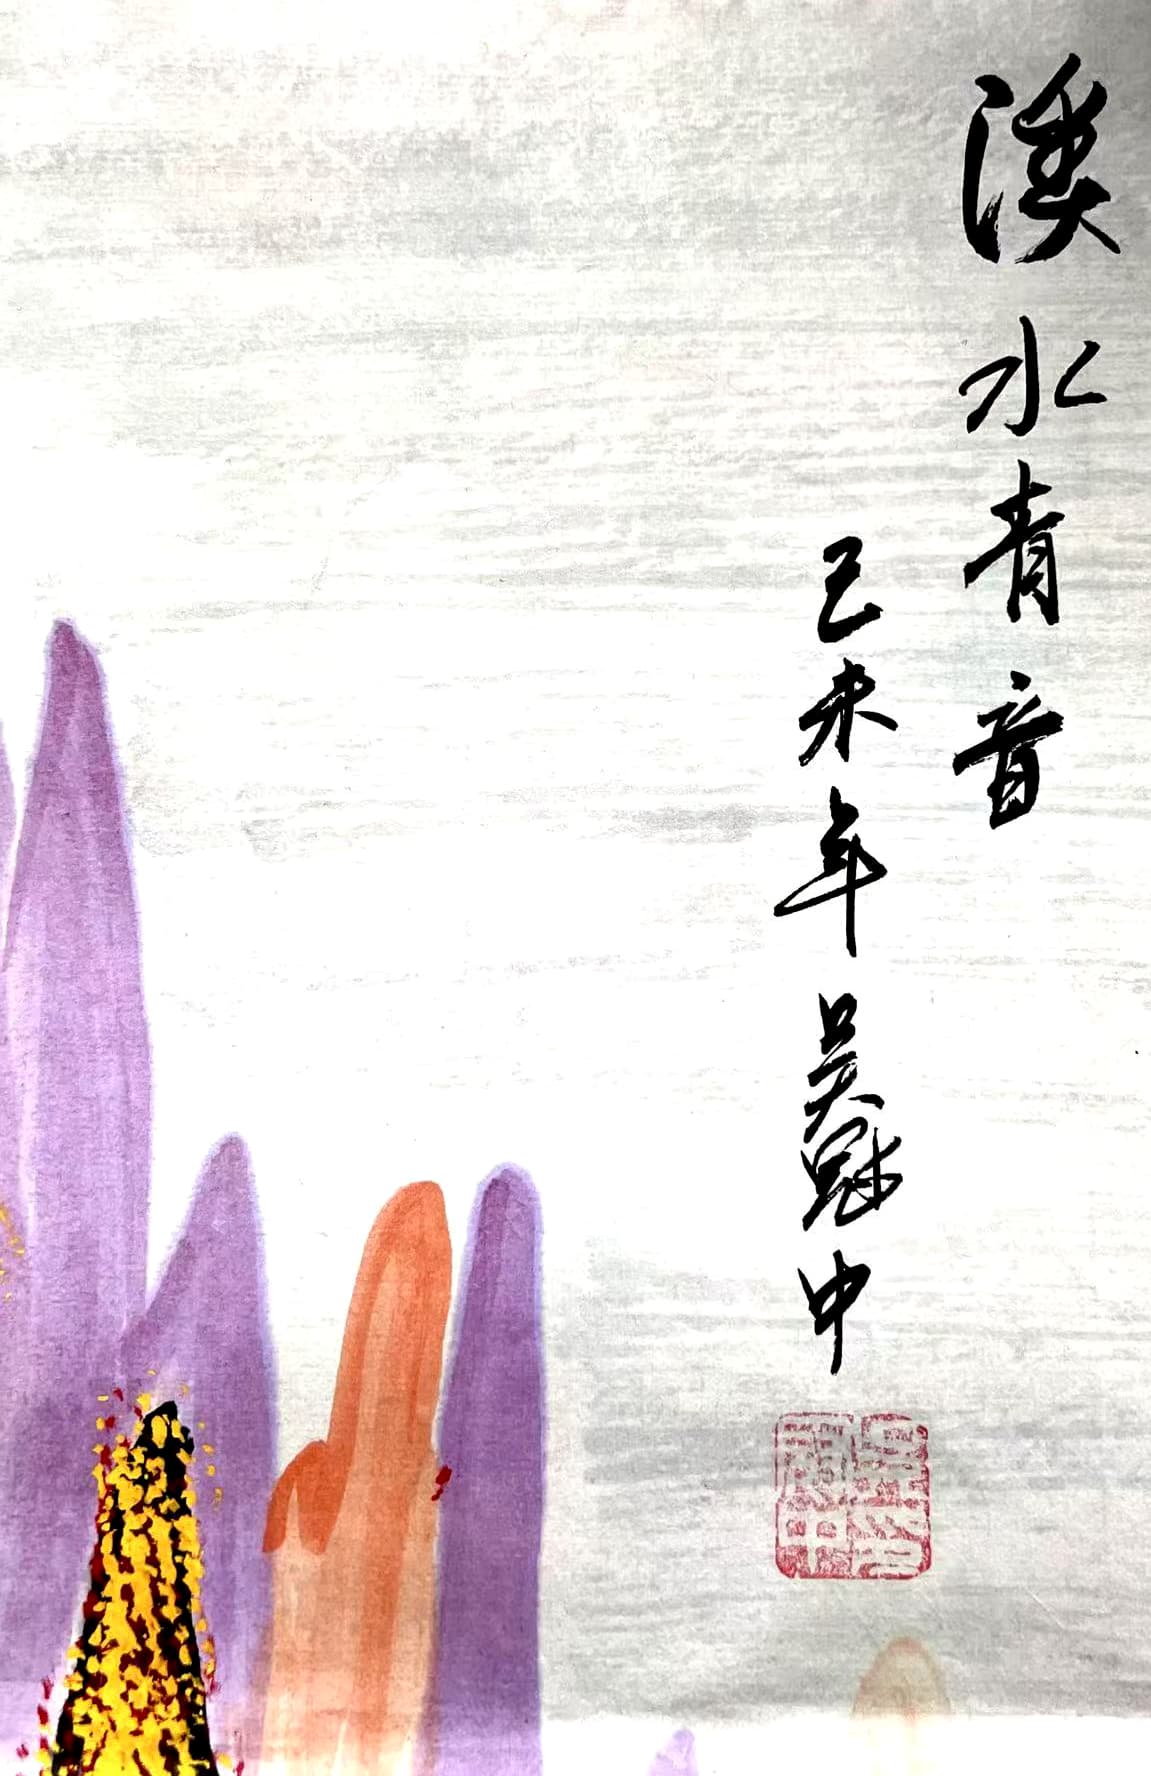 溪水青音
己未年 吴冠中